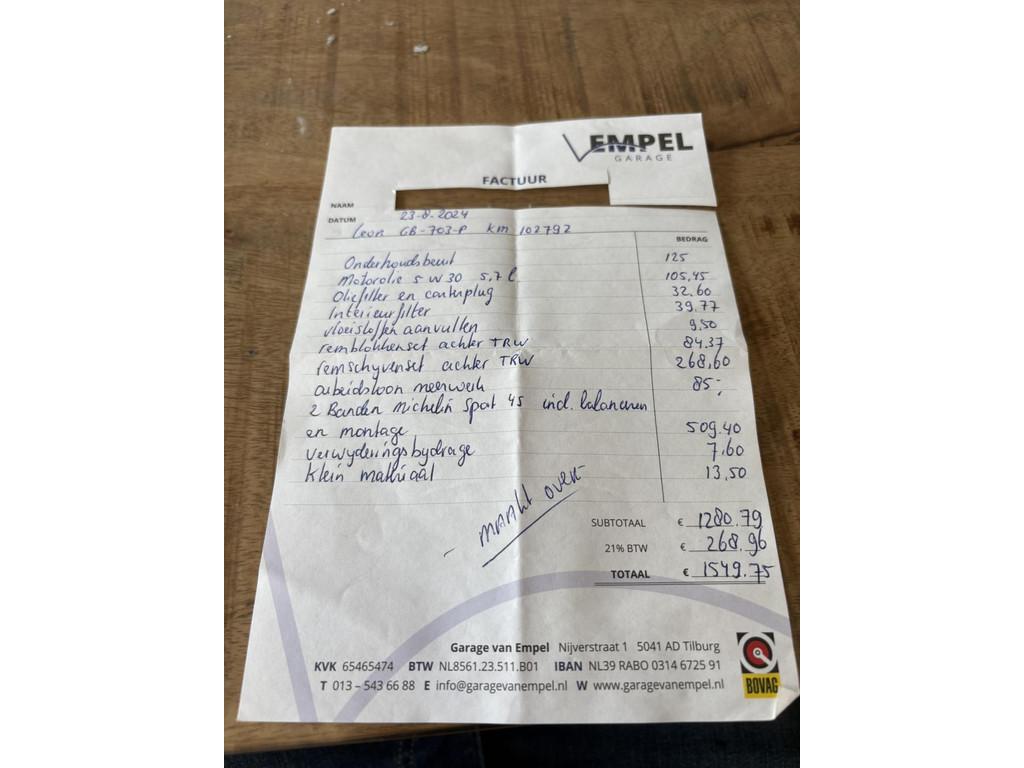 EMPEL
GARAGE
FACTUUR
NAAM
DATUM 23-8-2024
Leon GB-703-P km 102792
BEDRAG
Onderhoudsbeurt 125
Motorolie 5W30 5,7 l 105,45
Oliefilter en carterplug 32.60
Interieurfilter 39.77
vloeistoffen aanvullen 9,50
remblokkenset achter TRW 84.37
remschyvenset achter TRW 268,60
arbeidsloon meerwerk 85,-
2 Banden Michelin Sport 4S incl. balanceren
en montage 509.40
verwyderingsbydrage 7.60
klein materiaal 13,50
- maakt over -
SUBTOTAAL € 1280.79
21% BTW € 268.96
TOTAAL € 1549.75
Garage van Empel Nijverstraat 1 5041 AD Tilburg
KVK 65465474 BTW NL8561.23.511.B01 IBAN NL39 RABO 0314 6725 91
T 013 – 543 66 88 E info@garagevanempel.nl W www.garagevanempel.nl
BOVAG